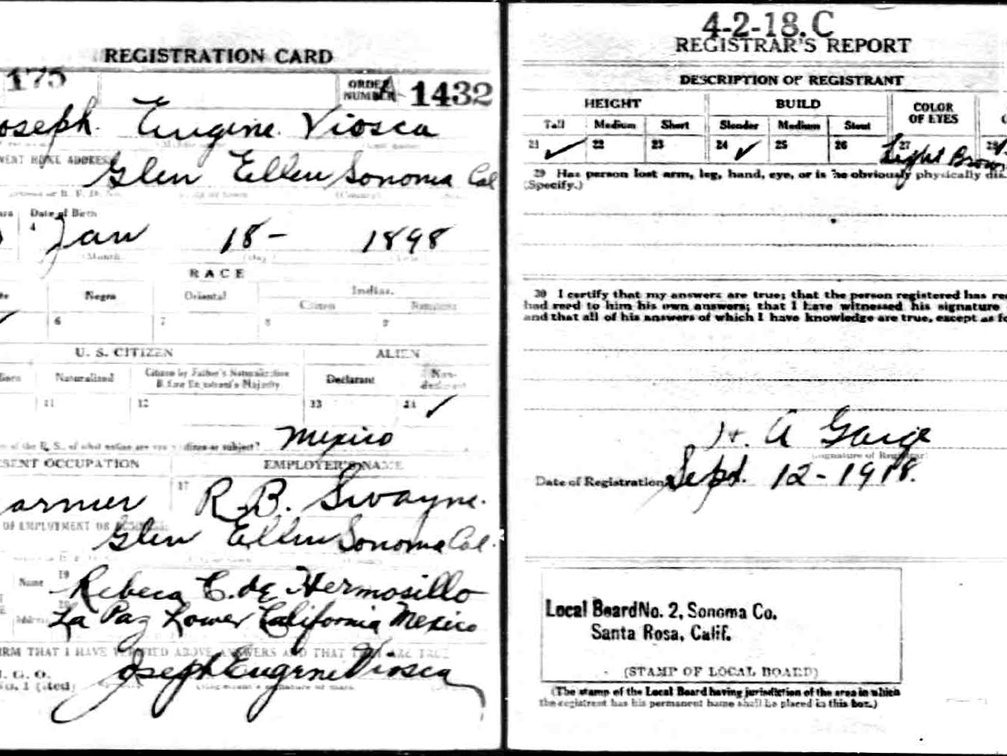 REGISTRATION CARD
175
ORDER NUMBER A 1432
oseph Eugene Viosca
ENT HOME ADDRESS
Glen Ellen Sonoma Cal
Date of Birth
4 Jan 18- 1898
(Month) (day)
RACE
Negro Oriental Indian
Citizen
6 7 8 9
U. S. CITIZEN ALIEN
Naturalized Citizen by Father's Naturalization Before Registrant's Majority Declarant Non-declarant
11 12 13 14 ✓
of the U. S., of what nation are you a citizen or subject? Mexico
SENT OCCUPATION EMPLOYER'S NAME
armer 17 R. B. Swayne.
OF EMPLOYMENT OR BUSINESS
Glen Ellen Sonoma Cal.
Name 19 Rebeca C. de Hermosillo
Address 20 La Paz Lower California Mexico
IRM THAT I HAVE VERIFIED ABOVE ANSWERS AND THAT THEY ARE TRUE
. G. O.
No. 1 (Red) Joseph Eugene Viosca
4-2-18. C
REGISTRAR'S REPORT
DESCRIPTION OF REGISTRANT
HEIGHT BUILD COLOR OF EYES
Tall Medium Short Slender Medium Stout
21 ✓ 22 23 24 ✓ 25 26 27 Light Brown 28
29 Has person lost arm, leg, hand, eye, or is he obviously physically dis
(Specify.)
30 I certify that my answers are true; that the person registered has re
had read to him his own answers; that I have witnessed his signature
and that all of his answers of which I have knowledge are true, except as fo
H. A
(Signature of Registrar)
Date of Registration Sept. 12-1918.
Local Board No. 2, Sonoma Co.
Santa Rosa, Calif.
(STAMP OF LOCAL BOARD)
(The stamp of the Local Board having jurisdiction of the area in which
the registrant has his permanent home shall be placed in this box.)